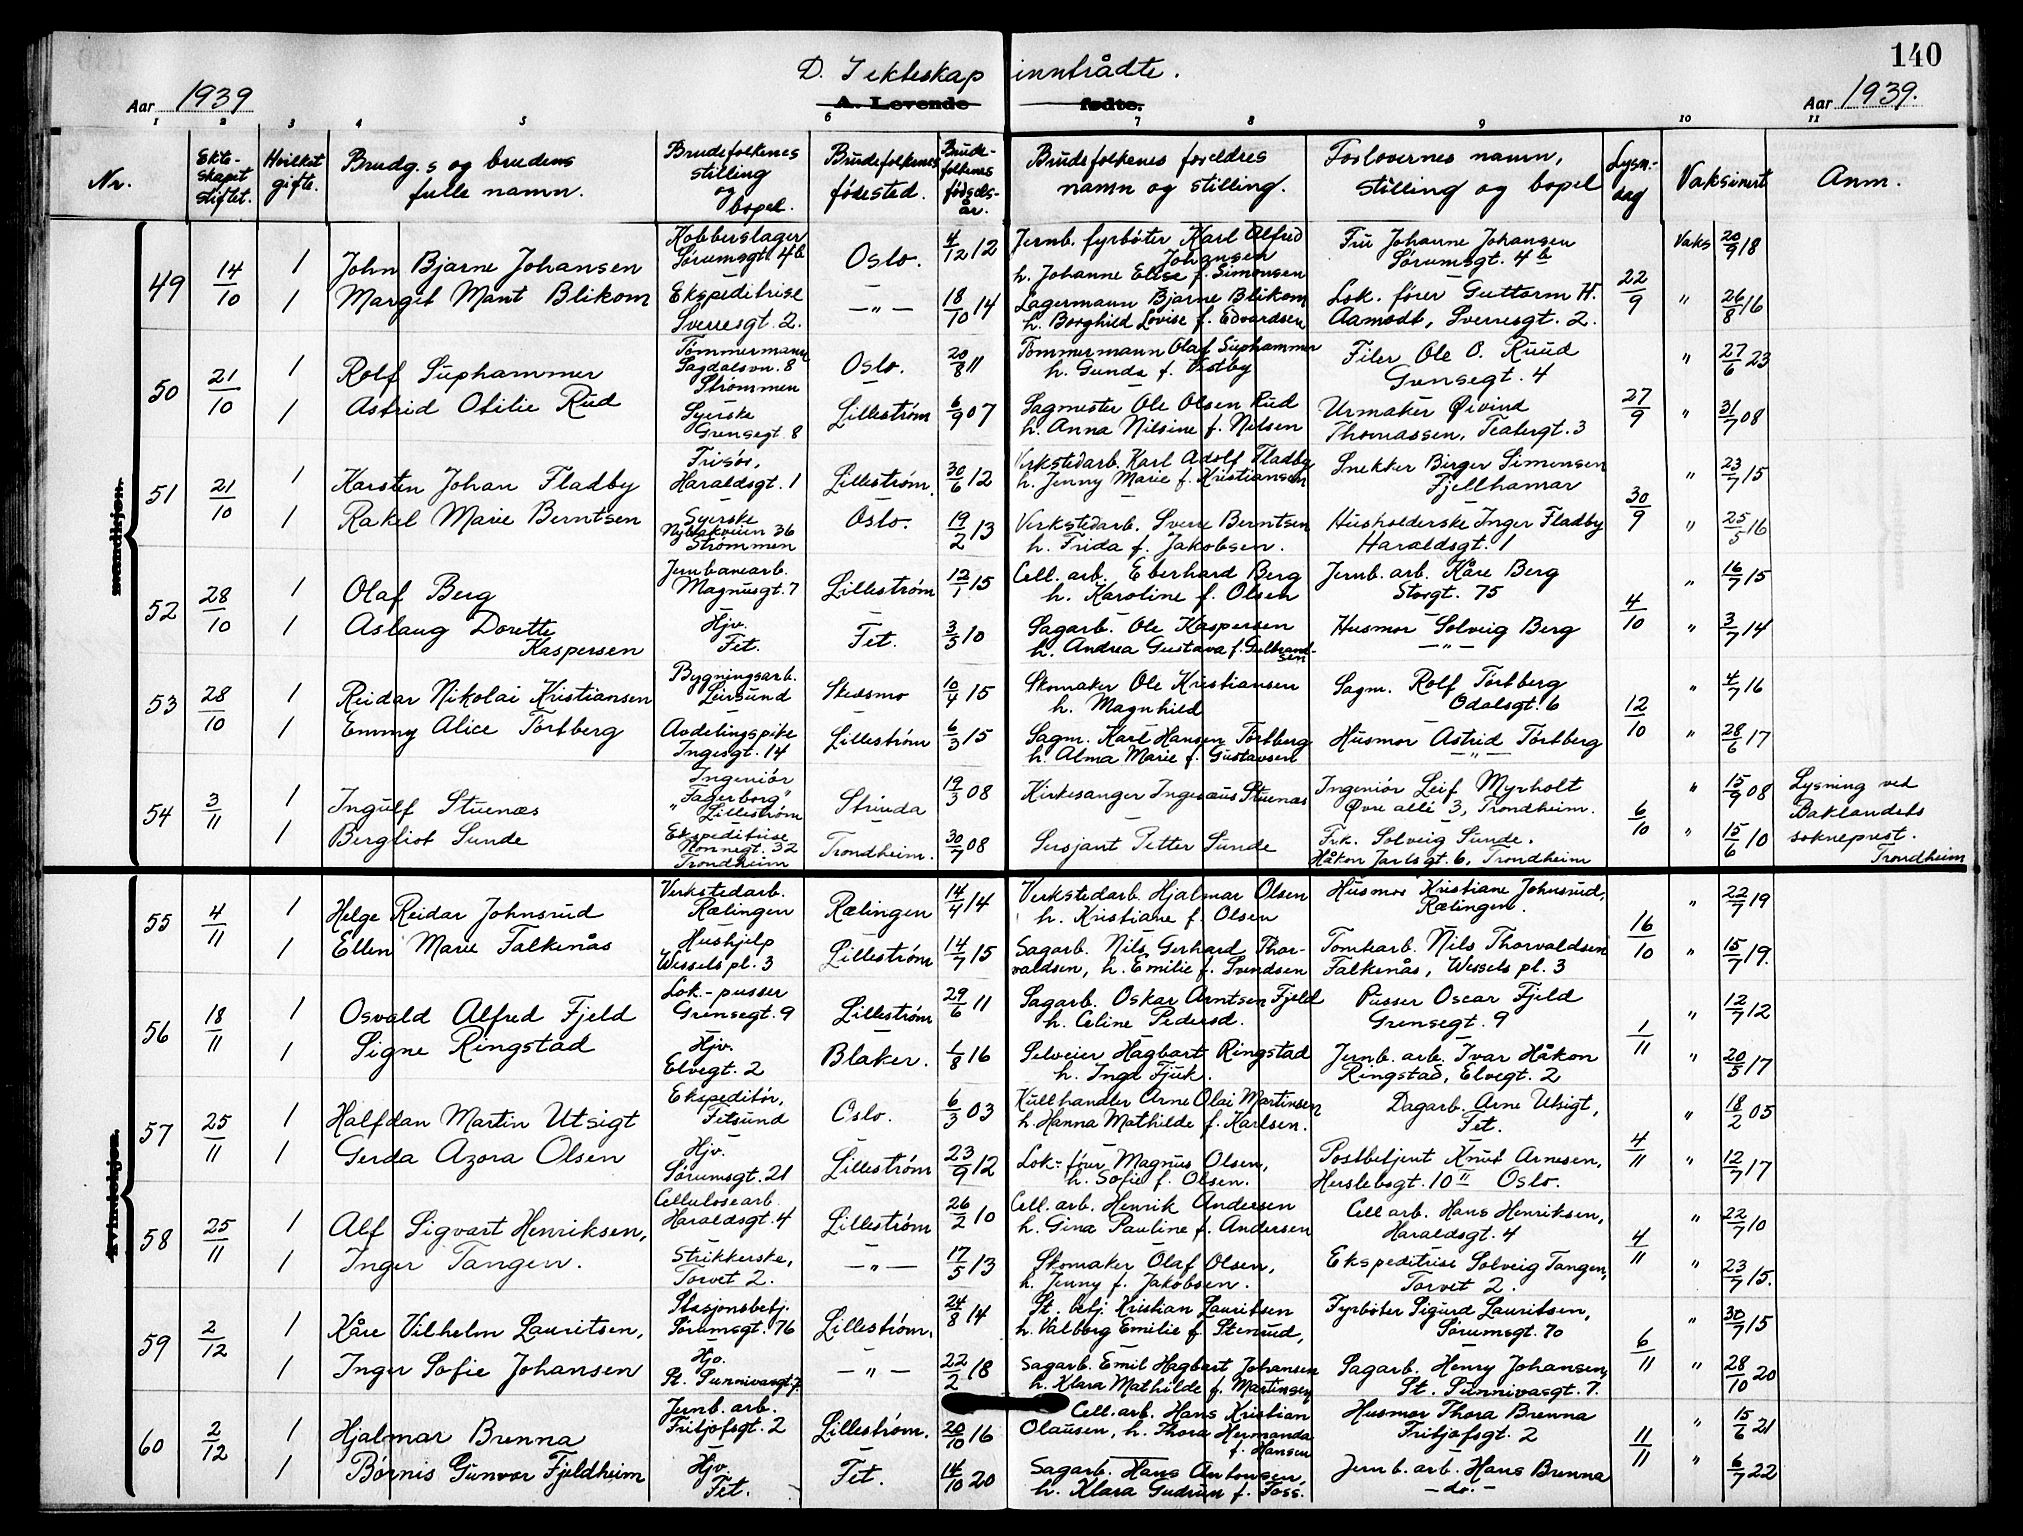 140
D. I ekteskap inntrådte.
Aar 1939
A. Levende fødte.
Aar 1939.
1 2 3 4 5 6 7 8 9 10 11
Nr.
Ekte-
skapet
stiftet.
Hvilket
gifte.
Brudg.s og brudens
fulle namn.
Brudefolkenes
stilling
og
bopel.
Brudefolkenes
fødested.
Brude-
folkenes
fødsels-
år.
Brudefolkenes foreldres
namn og stilling.
Forlovernes namn,
stilling og bopel
Lysn.-
dag
Vaksinert
Anm.
mandkjøn.
kvindekjøn.
49
14/10
1
John Bjarne Johansen
Kobberslager
Sørumsgt. 4b
Oslo.
4/12 12
Jernb. fyrbøter Karl Alfred
Johansen
h. Johanne Elise f. Simonsen
Fru Johanne Johansen
Sørumsgt. 4b
22/9
Vaks 20/9 18
1
Margit Mant Blikom
Ekspeditrise
Sverresgt. 2.
— " —
18/10 14
Lagermann Bjarne Blikom
h. Borghild Lovise f. Edvardsen
Lok. fører Guttorm H.
Aamodt, Sverresgt. 2.
" 26/8 16
50
21/10
1
Rolf Suphammer
Tømmermann
Sagdalsvn. 8
Strømmen
Oslo.
20/8 11
Tømmermann Olaf Suphammer
h. Gunda f. Vestby
Filer Ole O. Ruud
Grensegt. 4
27/9
" 27/6 23
1
Astrid Otilie Rud
Syerske
Grensegt. 8
Lillestrøm
6/9 07
Sagmester Ole Olsen Rud
h. Anna Nilsine f. Nilsen
Urmaker Øivind
Thomassen, Teatergt. 3
" 31/7 08
51
21/10
1
Karsten Johan Fladby
Frisør,
Haraldsgt. 1
Lillestrøm.
30/6 12
Verkstedarb. Karl Adolf Fladby
h. Jenny Marie f. Kristiansen
Snekker Birger Simensen
Fjellhamar
30/9
" 23/7 15
1
Rakel Marie Berntsen
Syerske
Nybrakveien 36
Strømmen
Oslo.
19/2 13
Verkstedarb. Sverre Berntsen
h. Frida f. Jakobsen.
Husholderske Inger Fladby
Haraldsgt. 1
" 25/5 16
52
28/10
1
Olaf Berg
Jernbanearb.
Magnusgt. 7
Lillestrøm
12/1 15
Cell. arb. Eberhard Berg
h. Karoline f. Olsen
Jernb. arb. Kåre Berg
Storgt. 75
4/10
" 16/7 15
1
Aslaug Dorette
Kaspersen
Hjv.
Fet.
Fet.
3/5 10
Sagarb. Ole Kaspersen
h. Andrea Gustava f. Gulbrand-
sen
Husmor Solveig Berg
— " —
" 3/7 14
53
28/10
1
Reidar Nikolai Kristiansen
Bygningsarb.
Leirsund
Skedsmo
10/4 15
Skomaker Ole Kristiansen
h. Magnhild
Sagm. Rolf Tørtberg
Odalsgt. 6
12/10
" 4/7 16
1
Emmy Alice Tørtberg
Avdelingspike
Ingesgt. 14
Lillestrøm
6/3 15
Sagm. Karl Hansen Tørtberg
h. Alma Marie f. Gustavsen
Husmor Astrid Tørtberg
— " —
" 28/6 17
54
3/11
1
Ingulf Stuenæs
Ingeniør
"Fagerborg"
Lillestrøm
Strinda
19/3 08
Kirkesanger Ingeæus Stuenæs
Ingeniør Leif Myrholt
Øvre allé 3, Trondheim.
6/10
" 15/9 08
Lysning ved
Baklandets
sokneprest.
Trondheim
1
Bergliot Sunde
Ekspeditrise
Nonnegt. 32
Trondheim
Trondheim.
30/7 08
Sersjant Petter Sunde
Frk. Solveig Sunde,
Håkon Jarlsgt. 6, Trondheim
" 15/6 10
55
4/11
1
Helge Reidar Johnsrud
Verkstedarb.
Rælingen
Rælingen
14/4 14
Verkstedarb. Hjalmar Olsen
h. Kristiane f. Olsen
Husmor Kristiane Johnsrud,
Rælingen.
16/10
" 22/7 19
1
Ellen Marie Falkenås
Hushjelp
Wessels pl. 3
Lillestrøm
14/7 15
Sagarb. Nils Gerhard Thor-
valdsen, h. Emilie f. Svendsen
Tomtearb. Nils Thorvaldsen
Falkenås, Wessels pl. 3
" 15/7 19.
56
18/11
1
Osvald Alfred Fjeld
Lok.-pusser
Grensegt. 9
Lillestrøm
29/6 11
Sagarb. Oskar Arntsen Fjeld
h. Celine Pedersd.
Pusser Oscar Fjeld
Grensegt. 9
1/11
" 12/7 12
1
Signe Ringstad
Hjv.
Elvegt. 2
Blaker.
1/8 16
Selveier Hagbart Ringstad
h. Inga Fjuk.
Jernb. arb. Ivar Håkon
Ringstad, Elvegt. 2
" 20/5 17
57
25/11
1
Halfdan Martin Utsigt
Ekspeditør,
Fetsund
Oslo.
6/3 03
Kullhandler Arne Olai Martinsen
h. Hanna Mathilde f. Karlsen.
Dagarb. Arne Utsigt,
Fet.
4/11
" 18/2 05
1
Gerda Azora Olsen
Hjv.
Sørumsgt. 21
Lillestrøm
23/9 12
Lok.-fører Magnus Olsen,
h. Sofie f. Olsen.
Postbetjent Knut Arnesen,
Herslebsgt. 10 II Oslo.
" 12/7 17
58
25/11
1
Alf Sigvart Henriksen,
Cellulosearb
Haraldsgt. 4
Lillestrøm
26/2 10
Cell. arb. Henrik Andersen
h. Gina Pauline f. Andersen
Cell arb. Hans Henriksen,
Haraldsgt. 4
4/11
" 22/7 10
1
Inger Tangen.
Strikkerske,
Torvet 2.
— " —
17/5 13
Skomaker Olaf Olsen,
h. Jenny f. Jakobsen.
Ekspeditrise Solveig Tangen,
Torvet 2.
" 23/7 15.
59
2/12
1
Kåre Vilhelm Lauritsen,
Stasjonsbetj.
Sørumsgt. 76
Lillestrøm.
24/8 14
St. betj. Kristian Lauritsen
h. Valborg Emilie f. Stenrud,
Fyrbøter Sigurd Lauritsen,
Sørumsgt. 70
6/11
" 30/7 15
1
Inger Sofie Johansen
Hjv.
St. Sunnivasgt. 7.
— " —
22/2 18
Sagarb. Emil Hagbart Johansen
h. Klara Mathilde f. Martinsen
Sagarb. Henry Johansen,
St. Sunnivasgt. 7.
" 28/10 20
60
2/12
1
Hjalmar Brenna
Jernb. arb.
Fritjofsgt. 2
Lillestrøm.
20/10 16
Cell. arb. Hans Kristian
Olausen, h. Thora Hermanda
f. Hansen
Husmor Thora Brenna
Fritjofsgt. 2
11/11
" 15/6 21
1
Børnis Gunvor Fjeldheim
Hjv.
Fet.
Fet.
14/10 20
Sagarb. Hans Antonsen,
h. Klara Gudrun f. Foss.
Jernb. arb. Hans Brenna
— do. —
" 6/7 22